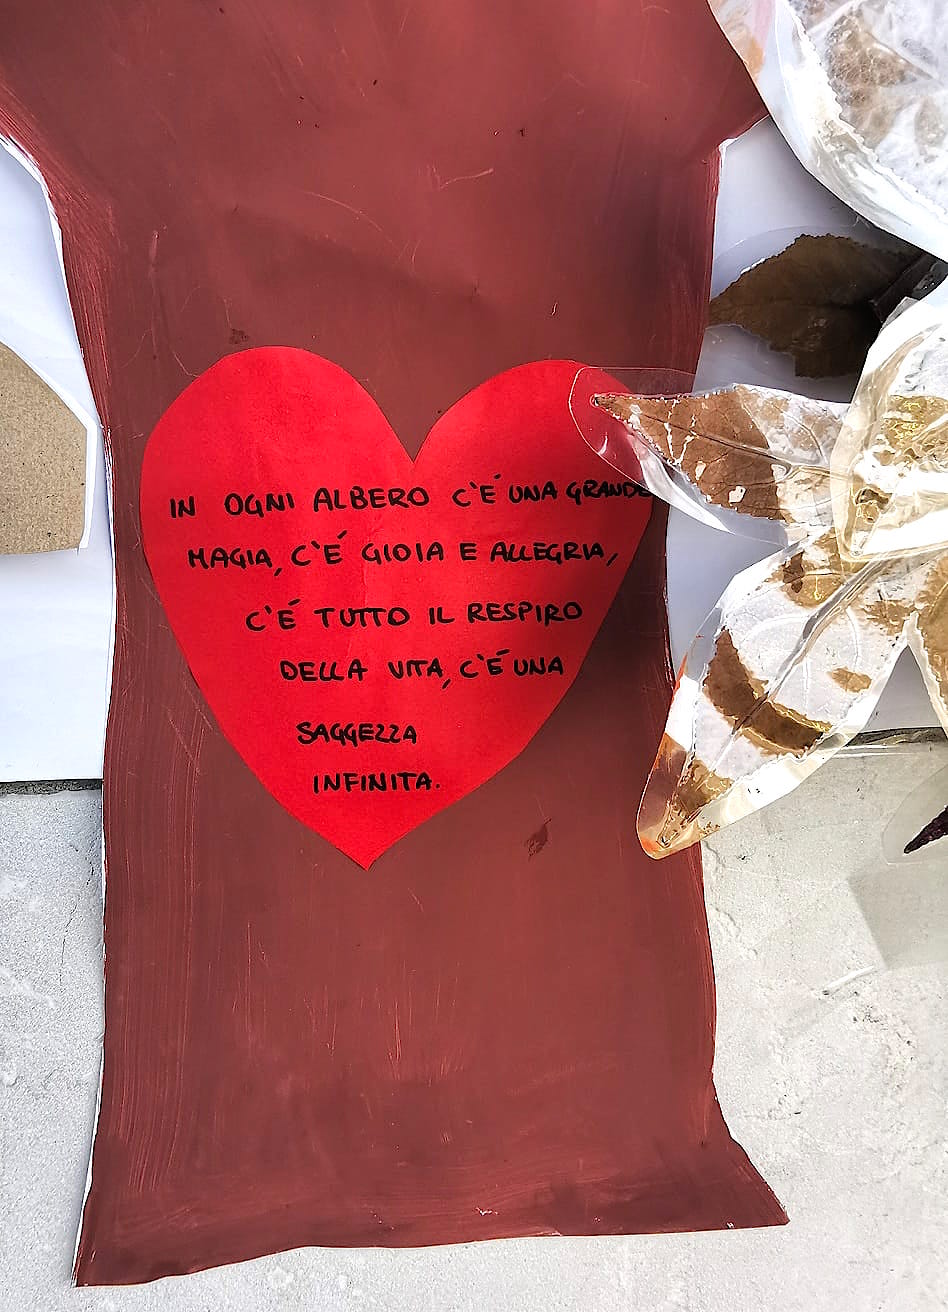 IN OGNI ALBERO C'É UNA GRANDE
MAGIA, C'É GIOIA E ALLEGRIA,
C'É TUTTO IL RESPIRO
DELLA VITA, C'É UNA
SAGGEZZA
INFINITA.